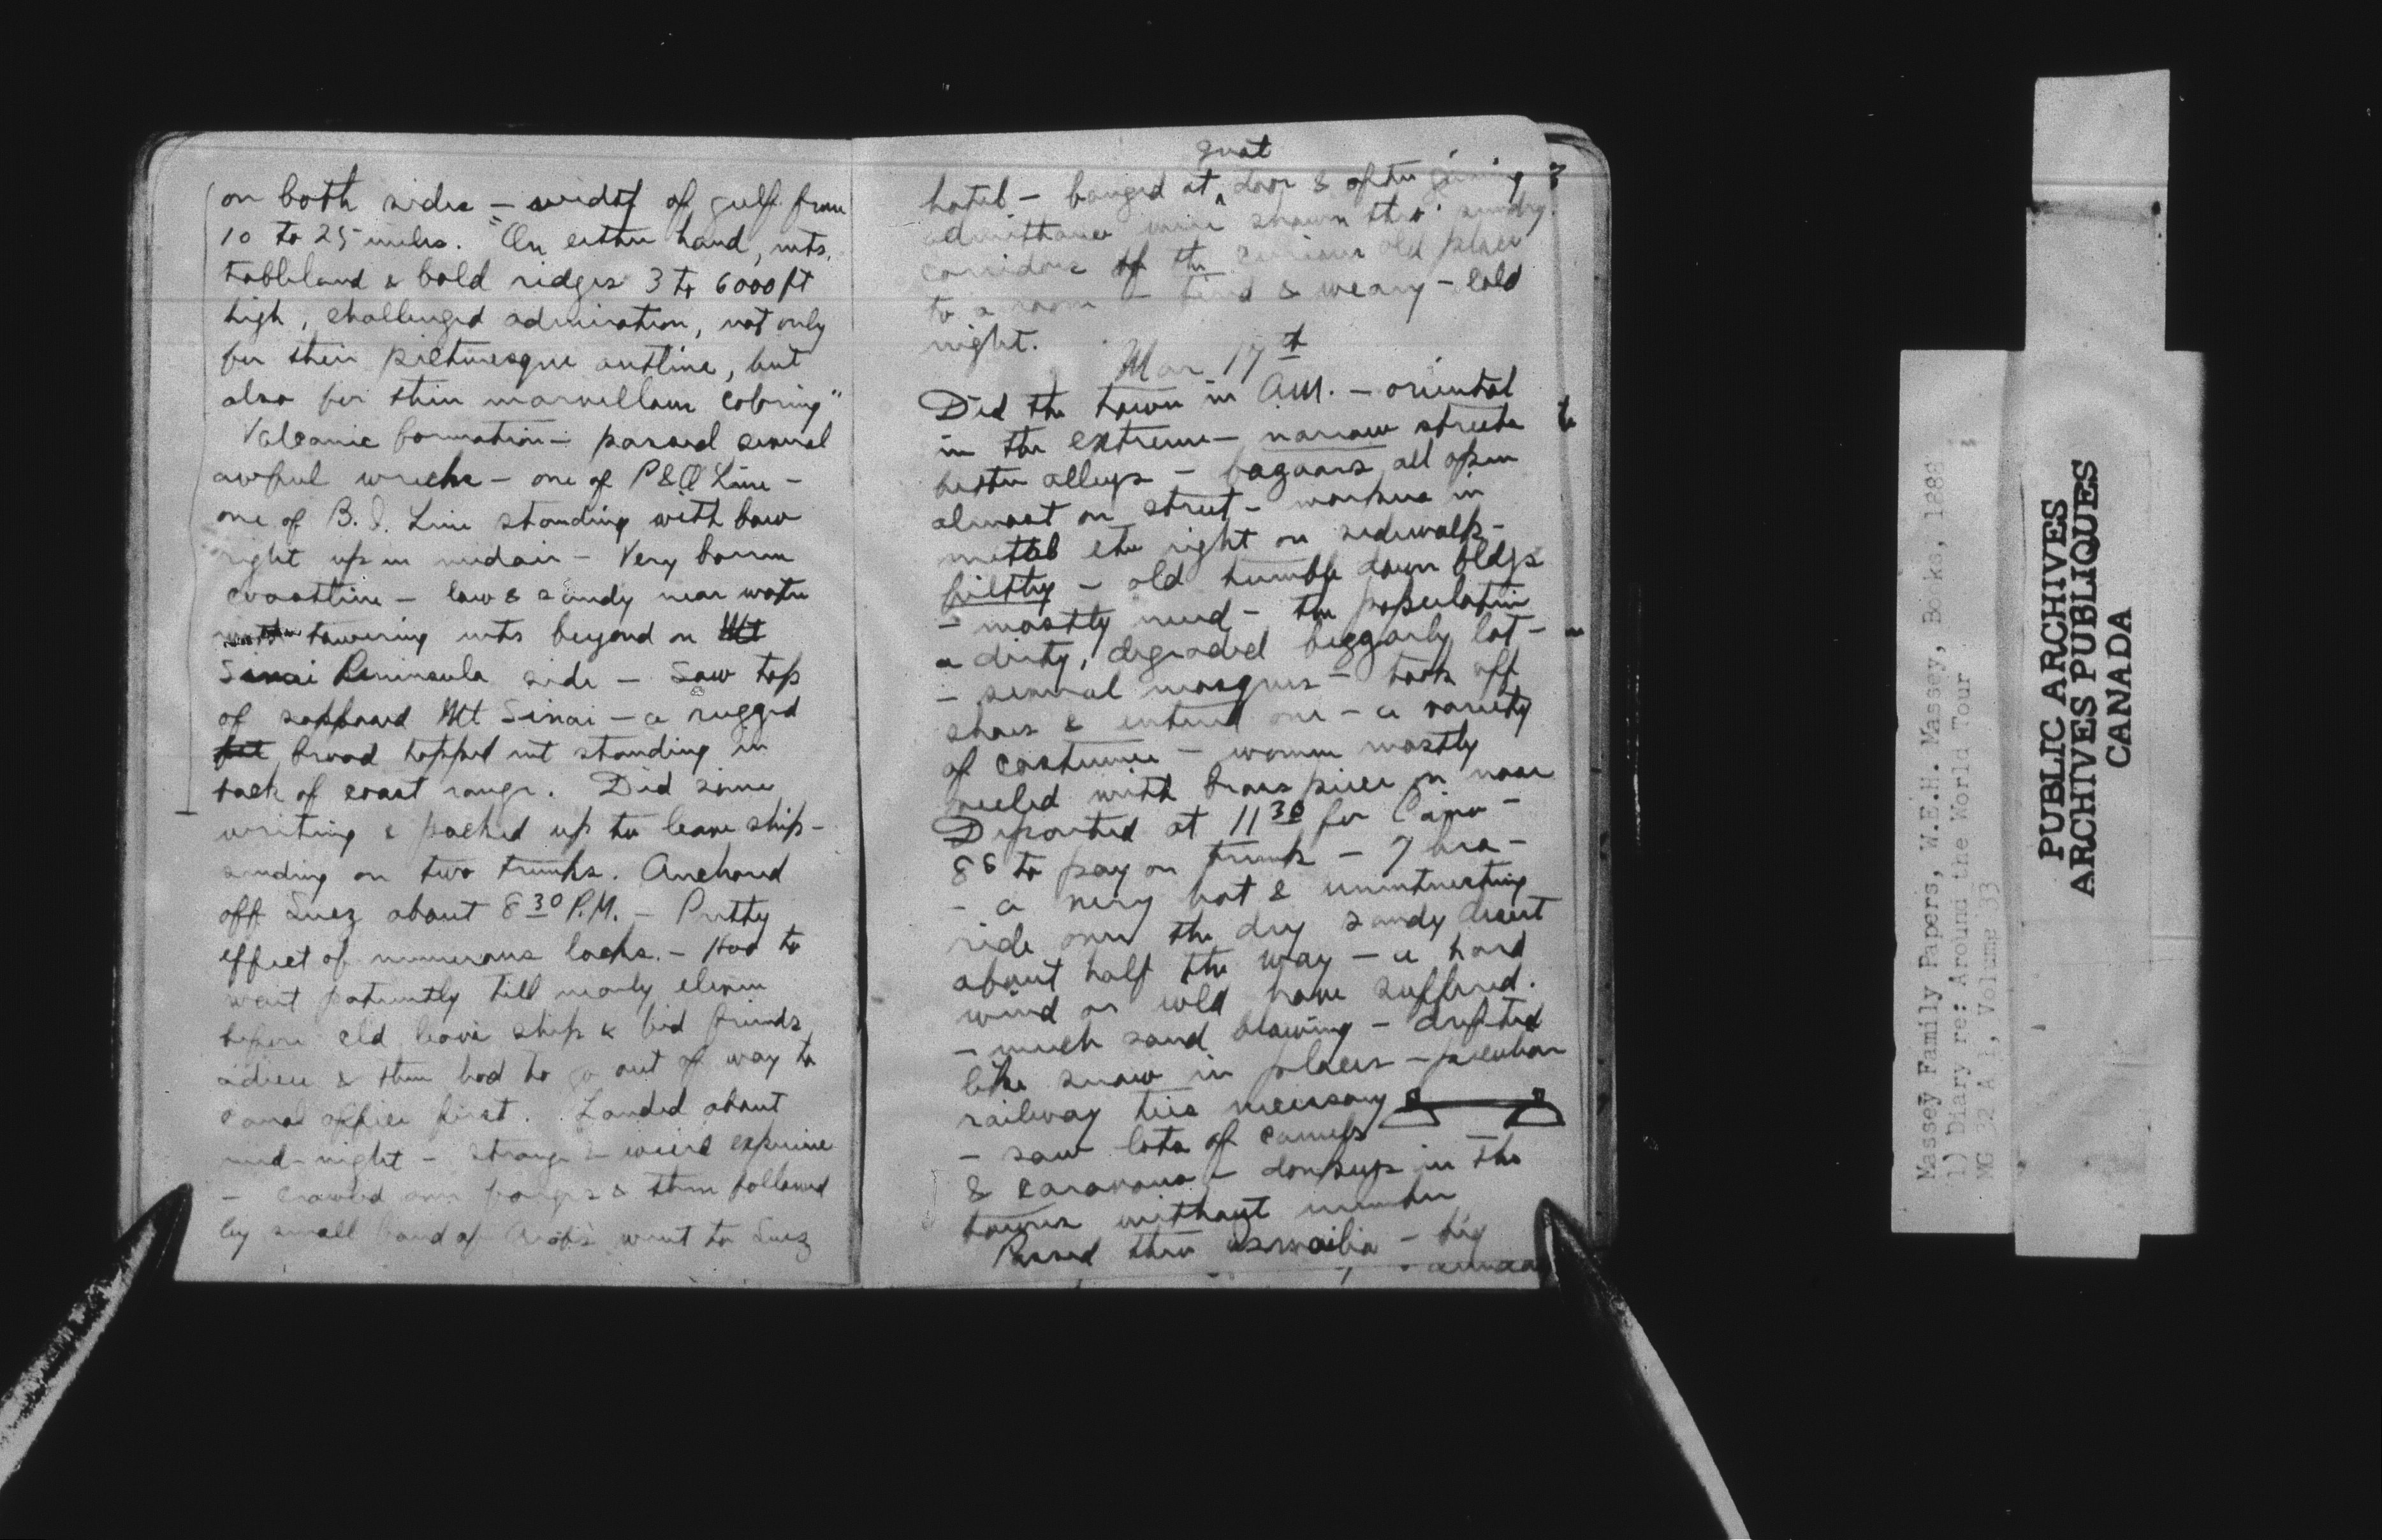 on both sides — width of gulf from
10 to 25 miles. "On either hand, mts,
tableland & bold ridges 3 to 6000 ft
high, challenged admiration, not only
for their picturesque outline, but
also for their marvellous coloring"
Volcanic formation — passed several
awful wrecks — one of P&O Line —
one of B.I. Line standing with bow
right up in midair — Very barren
coastline — low & sandy near water
with towering mts beyond on Mt
Sinai Peninsula side — Saw top
of supposed Mt Sinai — a rugged
broad topped mt standing in
back of coast range. Did some
writing & packed up to leave ship —
sending on two trunks. Anchored
off Suez about 8 30 P.M. — Pretty
effect of numerous lochs. — Had to
wait patiently till nearly eleven
before cld leave ship & bid friends
adieu & then had to go out of way to
canal office first. Landed about
mid-night — strange & weird experience
— crawled over barges & then followed
by small band of Arabs went to Suez
great
hotel — banged at door & after gaining
admittance were shown thro' sundry
corridors of the curious old place
to a room — tired & weary — cold
night.
Mar 17th
Did the town in A.M. — oriental
in the extreme — narrow streets
better alleys — bazaars all open
almost on street — workers in
metal etc right on sidewalk —
filthy — old tumble down bldgs
— mostly mud — the population
a dirty, degraded beggarly lot —
— several mosques — took off
shoes & entered one — a variety
of costumes — women mostly
veiled with brass piece on nose
Departed at 11 30 for Cairo —
8s to pay on trunk — 7 hrs —
— a very hot & uninteresting
ride over the dry sandy desert
about half the way — a hard
wind or wld have suffered.
— much sand blowing — drifted
like snow in places — peculiar
railway ties necessary
— saw lots of camels
& caravans — donkeys in the
towns without number
Passed thro Ismailia — big
PUBLIC ARCHIVES
ARCHIVES PUBLIQUES
CANADA
Massey Family Papers, W.E.H. Massey, Books, 1888
1) Diary re: Around the World Tour
MG 32 A 1, Volume 33